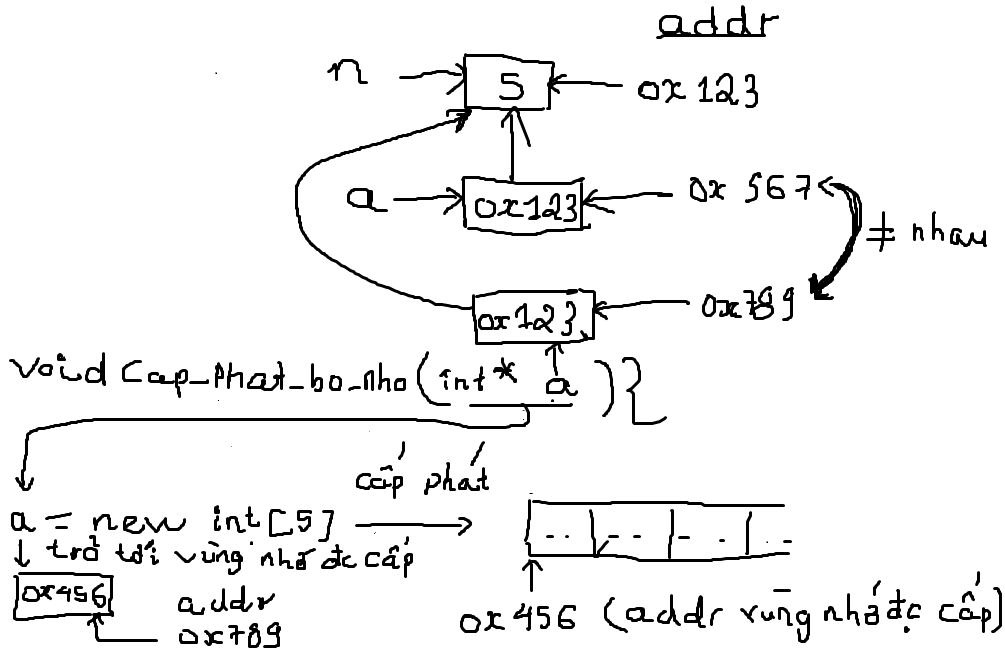 addr
n 5 0x123
a 0x123 0x567
≠ nhau
0x123 0x789
void Cap_phat_bo_nho(int* a){
cấp phát
a = new int[5]
trở tới vùng nhớ đc cấp
0x456 addr
0x789
0x456 (addr vùng nhớ đc cấp)